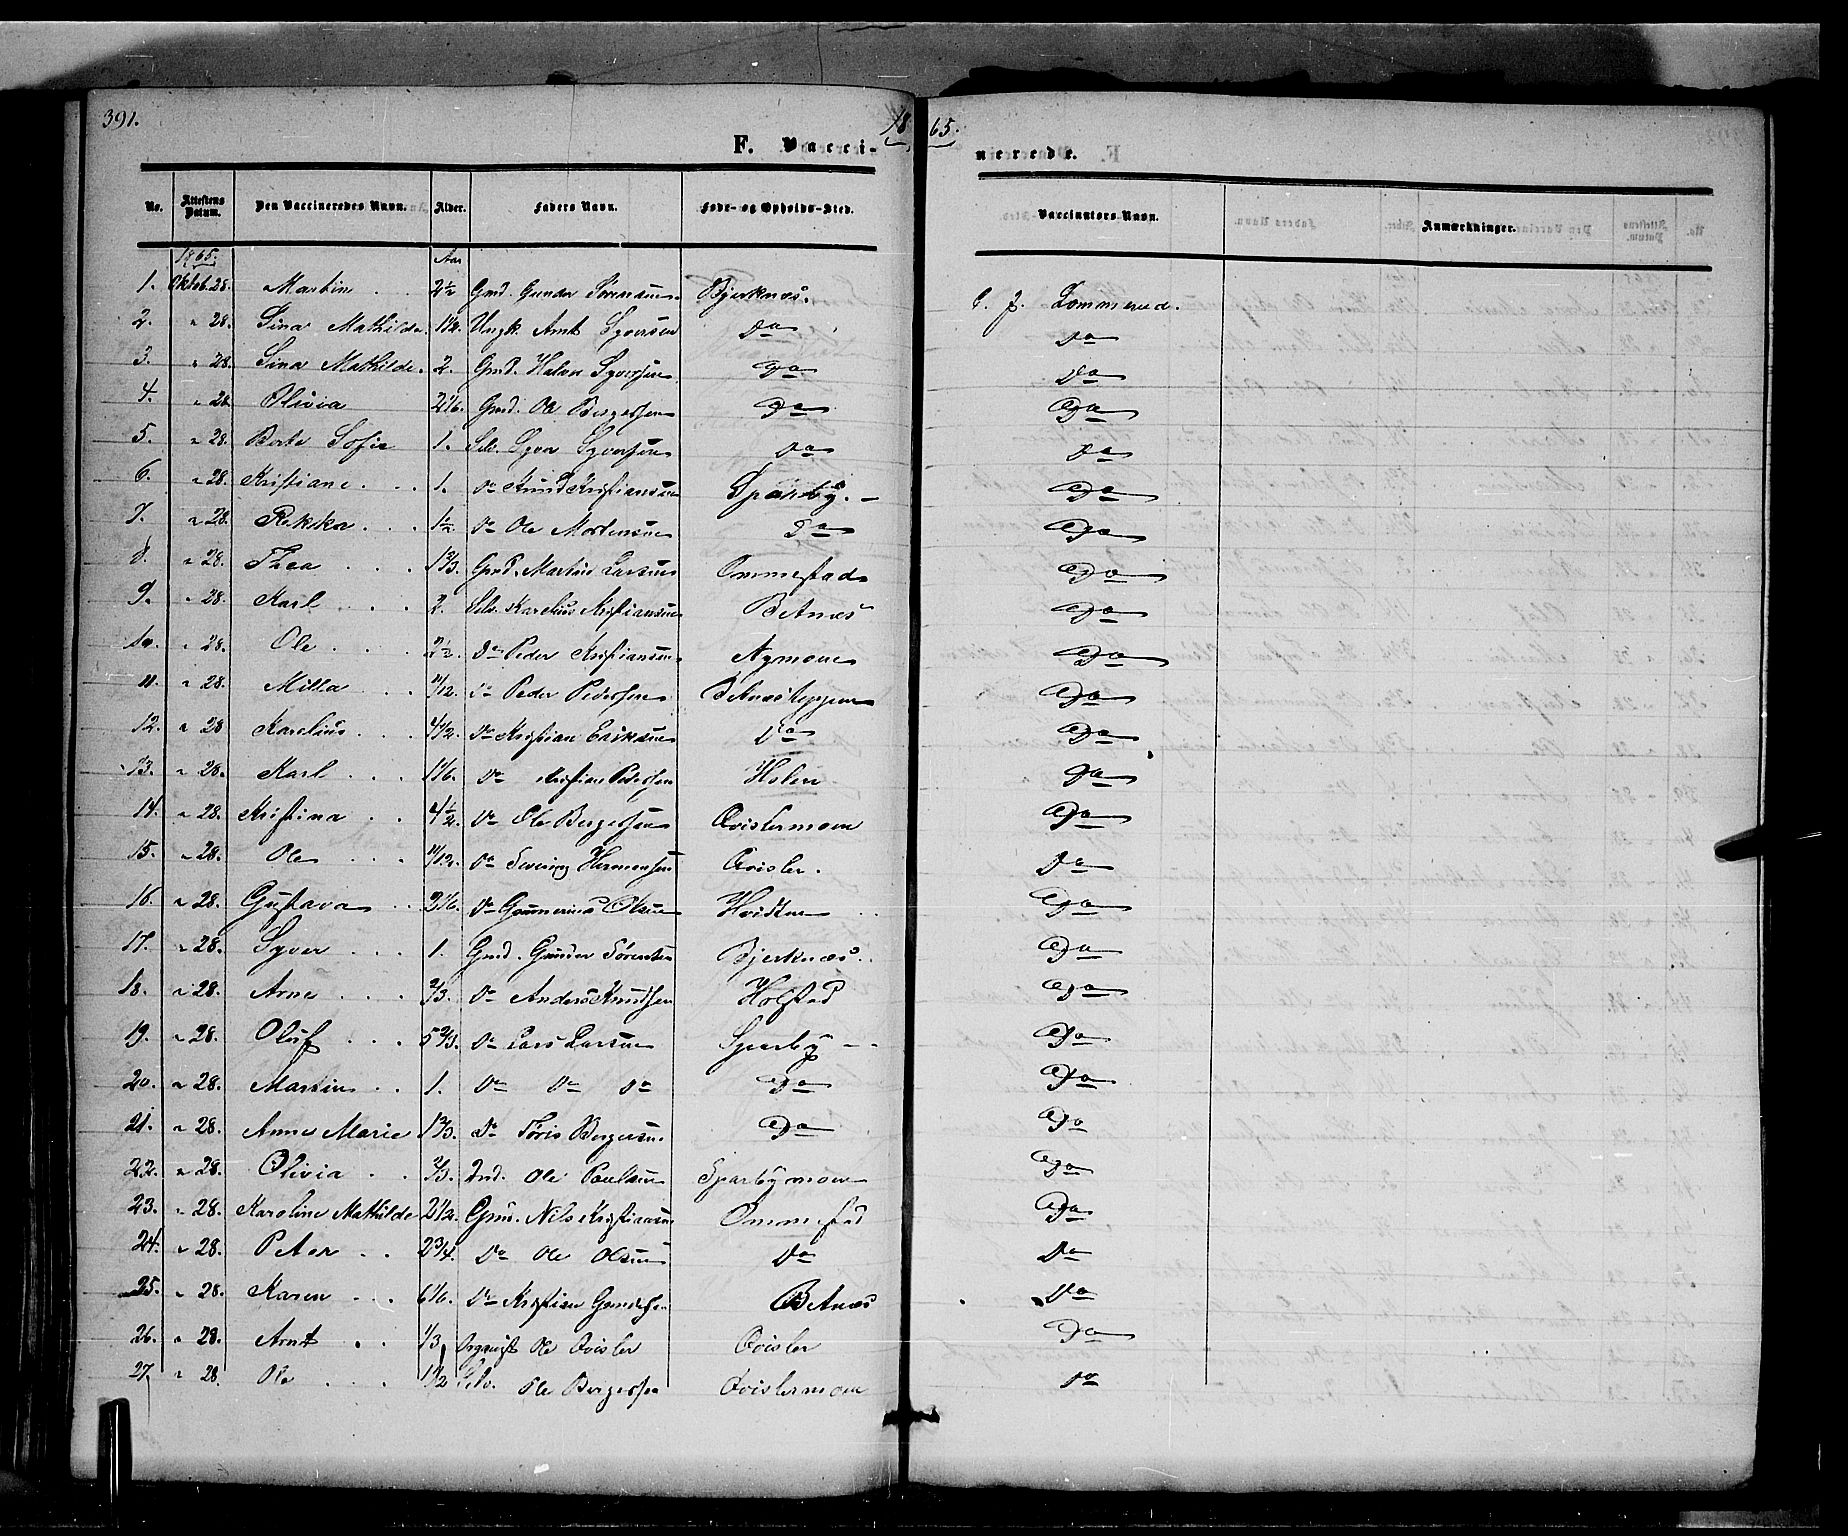 391.
18 65.
F. Vacci- nerede.
No. Attestens Datum. Den Vaccineredes Navn. Alder. Faders Navn. Føde- og Opholds-Sted. Vaccinators Navn. Anmærkninger.
1865. Aar
1. Oktob. 28. Martin 2½ Gmd. Gunder Sørensen Bjerknæs. C. J. Lommerud.
2. " 28. Sina Mathilde. 1½. Ungk. Arnt Syversen Do Do
3. " 28. Sina Mathilde. 2. Gmd. Halvor Syversen Do Do
4. " 28 Olivia 2 1/6. Gmd. Ole Bergersen Do Do
5. " 28. Berte Sofie 1. Selv. Syver Syversen Do Do
6. " 28. Kristiane 1. Do Knud Kristiansen Sparby. Do
7. " 28. Rekka 1½. Do Ole Mortensen Do Do
8. " 28. Thea 1 2/3. Gmd. Martin Larsen Ommestad Do
9. " 28. Karl 2. Selv. Karelius Kristiansen Betnæs Do
10. " 28. Ole 2½. Do Peder Kristiansen Nymoen Do
11. " 28. Milla 11/12. Do Peder Pedersen Betnæskoppen Do
12. " 28 Karelius 4½. Do Kristian Eriksen Do Do
13. " 28. Karl 1 1/6. Do Kristian Pedersen Holen Do
14. " 28. Kristina 4½. Do Ole Bergersen Qvislermoen Do
15. " 28. Ole 11/12. Do Severin Hermansen Qvisler. Do
16. " 28. Gustava 2 1/6. Do Gunnerius Olsen Hvidten Do
17. " 28. Syver 1. Gmd. Gunder Sørensen Bjerknæs. Do
18. " 28. Arne 2/3. Do Anders Knudsen Holstad Do
19. " 28. Oluf 5 2/3. Do Lars Larsen Sparby Do
20. " 28. Martin 1. Do Do Do Do Do
21. " 28. Anne Marie 1 2/3. Do Joris Bergersen Do Do
22. " 28. Olivia 2/3. Ind. Ole Paulsen Sparbymoen Do
23. " 28. Karoline Mathilde 2½. Gmd. Nils Kristiansen Ommestad Do
24. " 28. Peter 2¾. Do Ole Olsen Do Do
25. " 28. Karen 6 1/6. Do Kristian Gundersen Betnæs Do
26. " 28. Arnt 1/3. Ole Qvisler Qvisler Do
27. " 28. Ole 1½ Selv. Ole Bergersen Qvislermoen Do